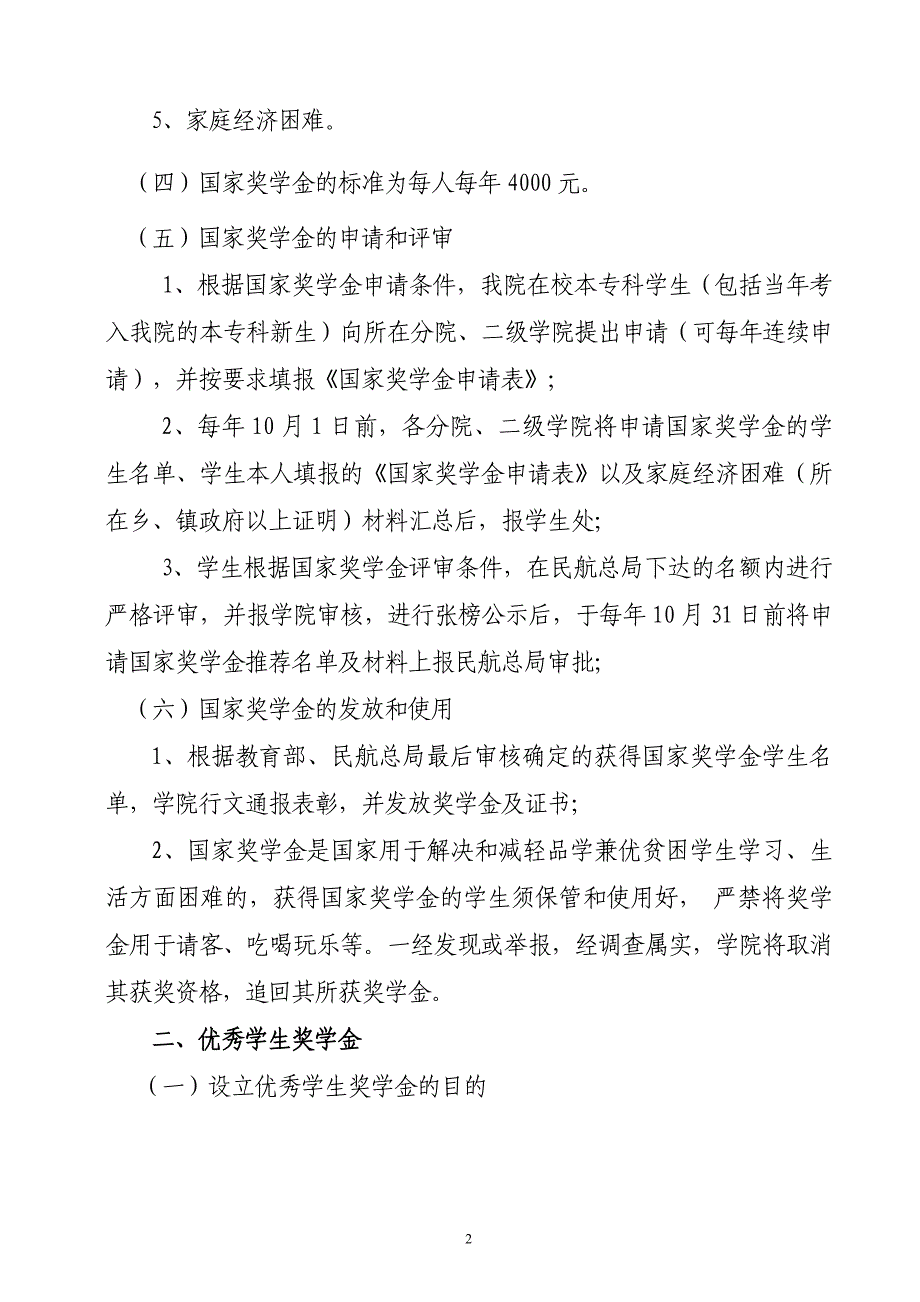 5、家庭经济困难。
（四）国家奖学金的标准为每人每年 4000 元。
（五）国家奖学金的申请和评审
1、根据国家奖学金申请条件，我院在校本专科学生（包括当年考
入我院的本专科新生）向所在分院、二级学院提出申请（可每年连续申
请），并按要求填报《国家奖学金申请表》；
2、每年 10 月 1 日前，各分院、二级学院将申请国家奖学金的学
生名单、学生本人填报的《国家奖学金申请表》以及家庭经济困难（所
在乡、镇政府以上证明）材料汇总后，报学生处；
3、学生根据国家奖学金评审条件，在民航总局下达的名额内进行
严格评审，并报学院审核，进行张榜公示后，于每年 10 月 31 日前将申
请国家奖学金推荐名单及材料上报民航总局审批；
（六）国家奖学金的发放和使用
1、根据教育部、民航总局最后审核确定的获得国家奖学金学生名
单，学院行文通报表彰，并发放奖学金及证书；
2、国家奖学金是国家用于解决和减轻品学兼优贫困学生学习、生
活方面困难的，获得国家奖学金的学生须保管和使用好， 严禁将奖学
金用于请客、吃喝玩乐等。一经发现或举报，经调查属实，学院将取消
其获奖资格，追回其所获奖学金。
二、优秀学生奖学金
（一）设立优秀学生奖学金的目的
2